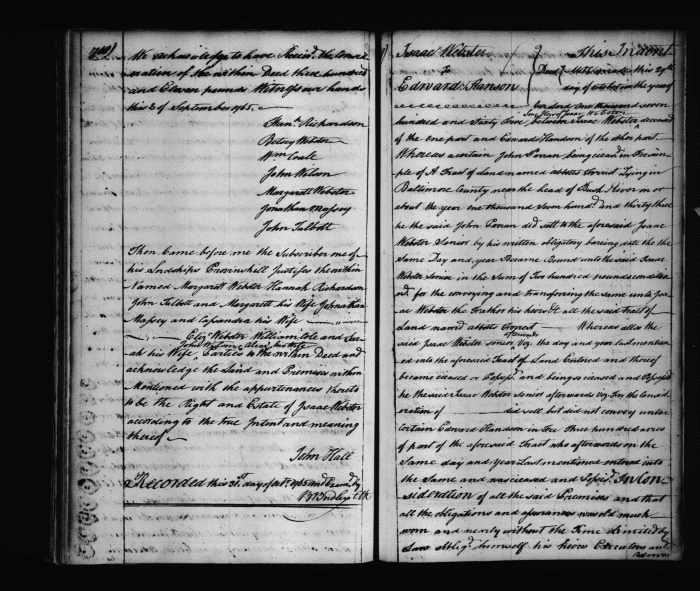 We acknowledge to have Receivd. the Consideration
ration of the within Deed three hundred
and Eleven pounds Witness our hands
this 3 of September 1765.
Hanh. Richardson
Betsey Webster
Wm Coale
John Wilson
Margarett Webster
Jonathan Massey
John Talbott
Then Came before me the Subscriber one of
his Lordships Provinshall Justices the within
Named Margarett Webster Hannah Richardson
John Talbott and Margarett his Wife Johnathan
Massey and Casandra his Wife
Eliz. Webster William Cole and Sar-
John Wilson & Aliza his Wife
ah his Wife, Parties to the within Deed and
acknowledge the Land and Premises within
Mentioned with the appurtenances thereto
to be the Right and Estate of Isaac Webster
according to the true Intent and meaning
thereof
John Hall
Recorded this 31st day of Octr. 1765 and Examd. by
Isaac Webster
To
Edward Hanson
This Indent
made this 29th
day of october in the year of
our Lord one thousand seven
hundred and Sixty Five, between Isaac Webster deceased
Son Heir of Isaac Webster
of the one part and Edward Handson of the other part
Whereas a certain John Ponan being ciead in Fee sim-
ple of A Tract of Land named abbotts Forrist Lying in
Baltimore County near the head of Bush River in or
about the year one thousand Seven hundd. and thirty three
he the said John Ponan did sell to the aforesaid Isaac
Webster Senior by his written obligatory bearing date the the
Same Day and year Became Bound unto the said Isaac
Webster Senior in the Sum of Two hundred pounds condition
ed for the conveying and transfering the same unto Isa-
ac Webster the Father his heirs &c all the said Tract of
Land named abbotts Forrest Whereas also the
afterwards
said Isaac Webster Senior Viz. the day and year last mention
ed into the aforesaid Tract of Land Entered and thereof
became ceased or Possesst. and being so ceased and Possest
he the said Isaac Webster Senior afterwards Viz. for the Consid
eration of did sell but did not convey unto a
certain Edward Handson in Fee Three hundred acres
of part of the aforesaid Tract who afterwards on the
Same day and year Last mentioned entered into
the Same and was ceased and Possest. In Con
sideration of all the said Premises and that
all the obligations and assurances was old much
worn and nearly without the Time Limited by
Law Oblig'd himself his heirs Executors and
Admrs